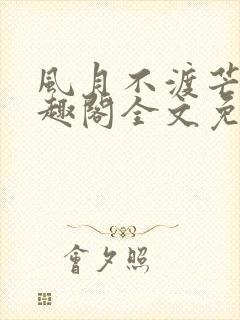 風月不渡芒
趣閣全文免
會夕照